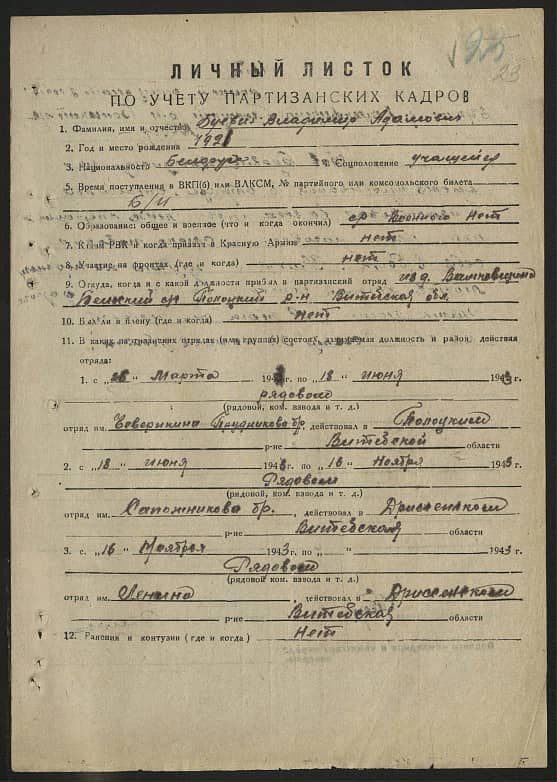 23
ЛИЧНЫЙ ЛИСТОК
ПО УЧЕТУ ПАРТИЗАНСКИХ КАДРОВ
1. Фамилия, имя и отчество Владимир Адамович
2. Год и место рождения
3. Национальность Белорус Соцположение учащейся
5. Время поступления в ВКП(б) или ВЛКСМ, № партийного или комсомольского билета
Б/П
6. Образование: общее и военное (что и когда окончил) ср. Военного Нет
7. Каким РВК и когда призван в Красную Армию нет
8. Участие на фронтах (где и когда) нет
9. Откуда, когда и с какой должности прибыл в партизанский отряд из д.
с/с Полоцкий р-н Витебская обл.
10. Был ли в плену (где и когда) нет
11. В каких партизанских отрядах (или группах) состоял, занимаемая должность и район действия
отряда:
1. с „ “ Марта 1943 по „18“ июня 1943 г.
рядовой
(рядовой, ком. взвода и т. д.)
отряд им. Чеверикина Прудникова бр. действовал в Полоцком
р-не Витебской области
2. с „18“ июня 1943 по „16“ Ноября 1943 г.
Рядовой
(рядовой, ком. взвода и т. д.)
отряд им. Сапожникова бр. , действовал в Дриссенском
р-не Витебская области
3. с „16“ Ноября 1943 г. по „ “ 1943 г.
Рядовой
(рядовой, ком. взвода и т. д.)
отряд им. Ленина , действовал в Дриссенском
р-не Витебская области
12. Ранения и контузии (где и когда) Нет